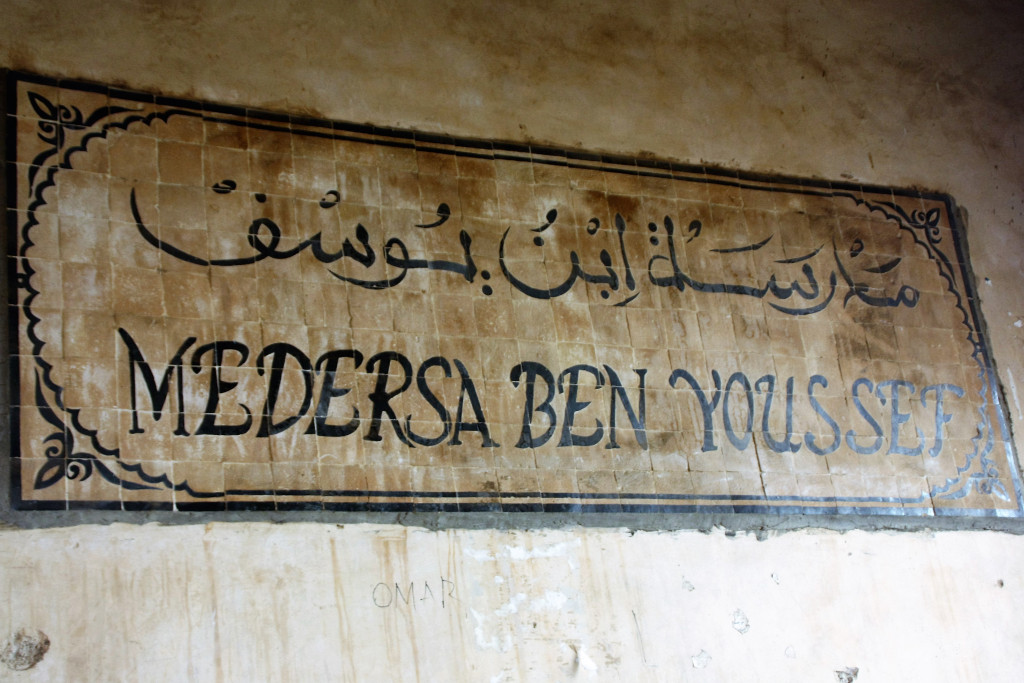 مَدْرَسَةُ إِبْنُ يُوسُفْ
MEDERSA BEN YOUSSEF
OMAR